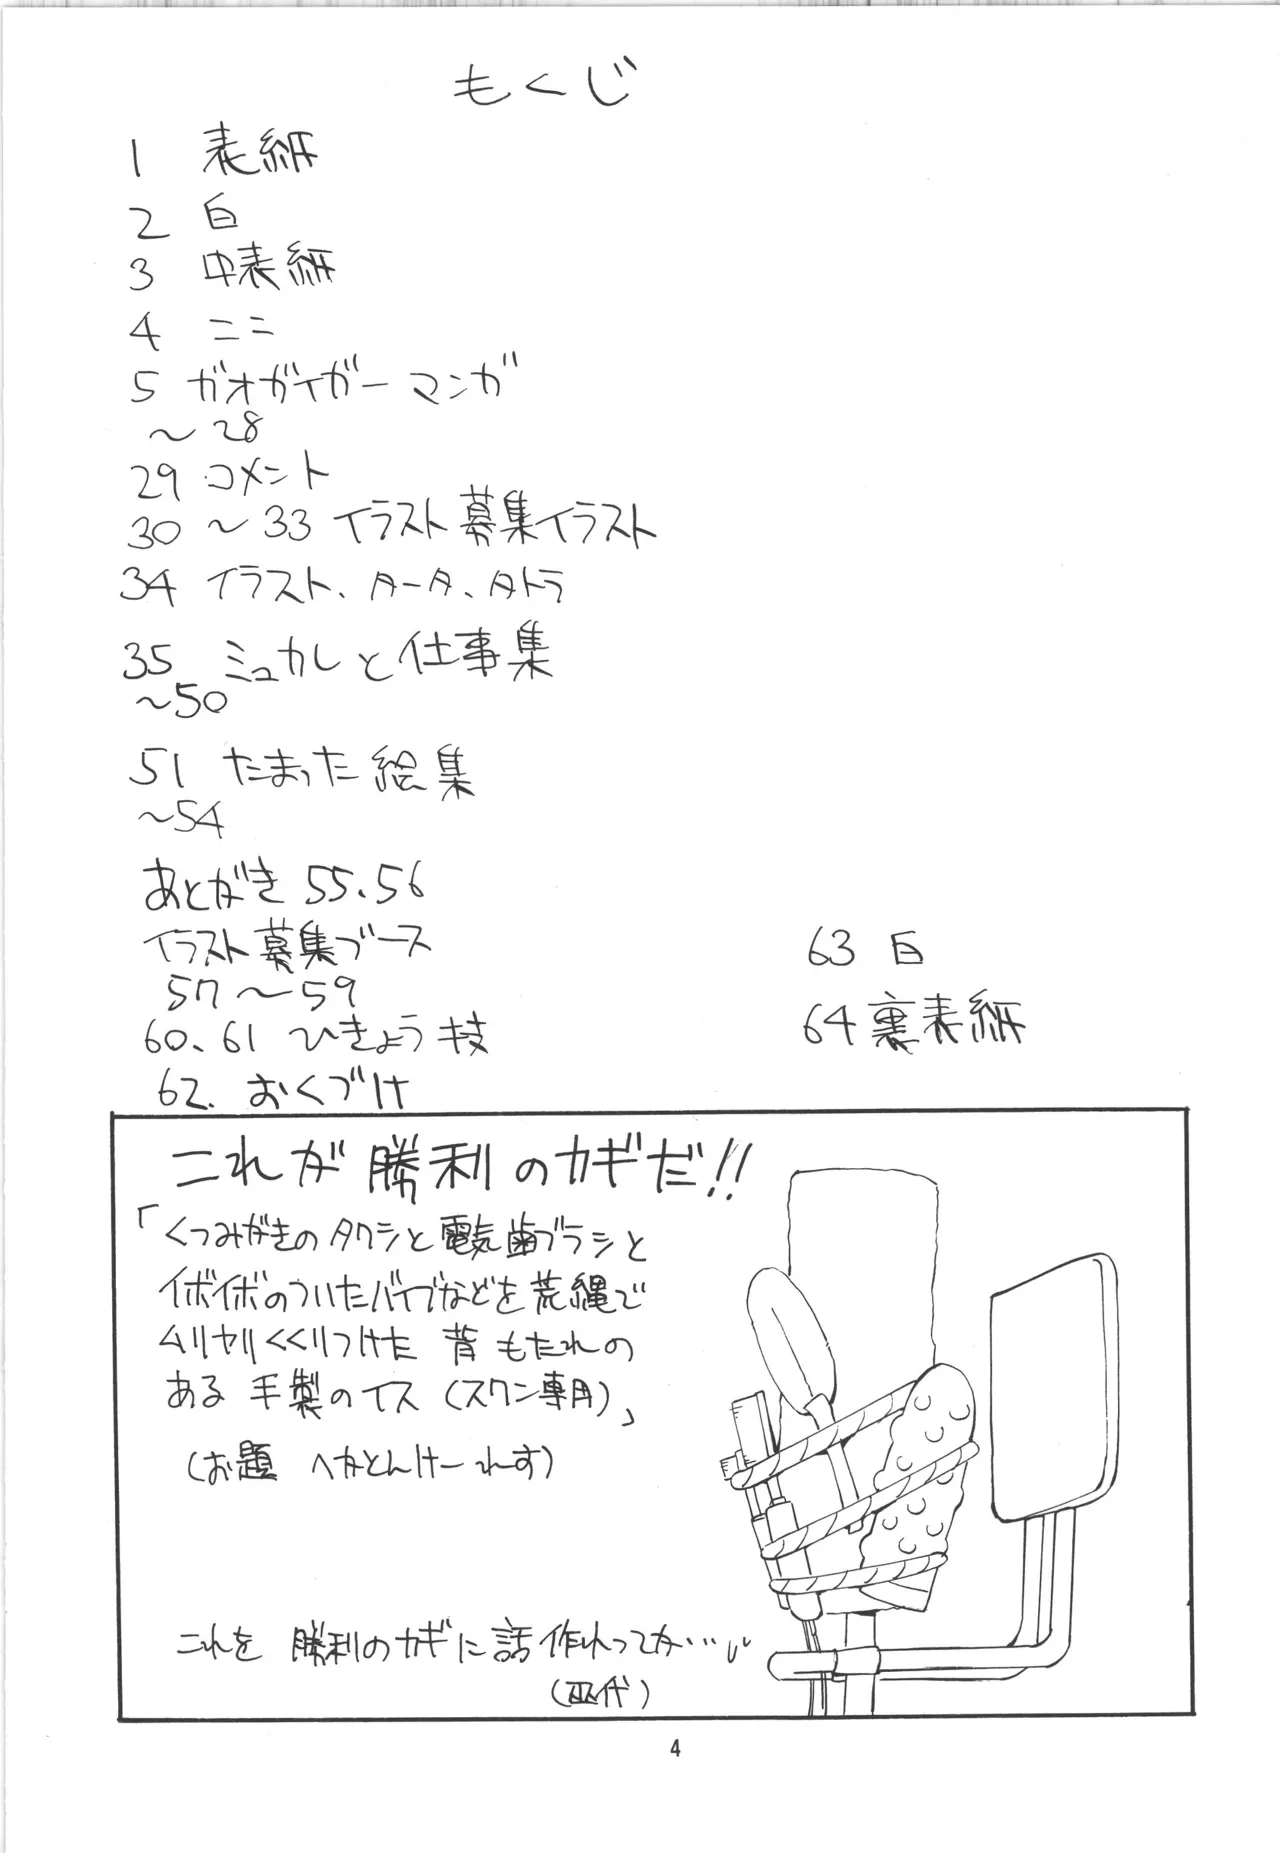 もくじ
1 表紙
2 白
3 中表紙
4 ココ
5 ガオガイガーマンガ
〜28
29 コメント
30〜33 イラスト募集イラスト
34 イラスト、タータ、タトラ
35 ミュカレと仕事集
〜50
51 たまった絵集
〜54
あとがき 55、56
イラスト募集ブース
57〜59
60、61 ひきょう技
62、おくづけ
63 白
64 裏表紙
これが勝利のカギだ!!
「くつみがきのタワシと電気歯ブラシと
イボイボのついたバイブなどを荒縄で
ムリヤリくくりつけた 背もたれの
ある 手製のイス (スワン専用)」
(お題 へかとんけーれす)
これを 勝利のカギに話作れってか…
4